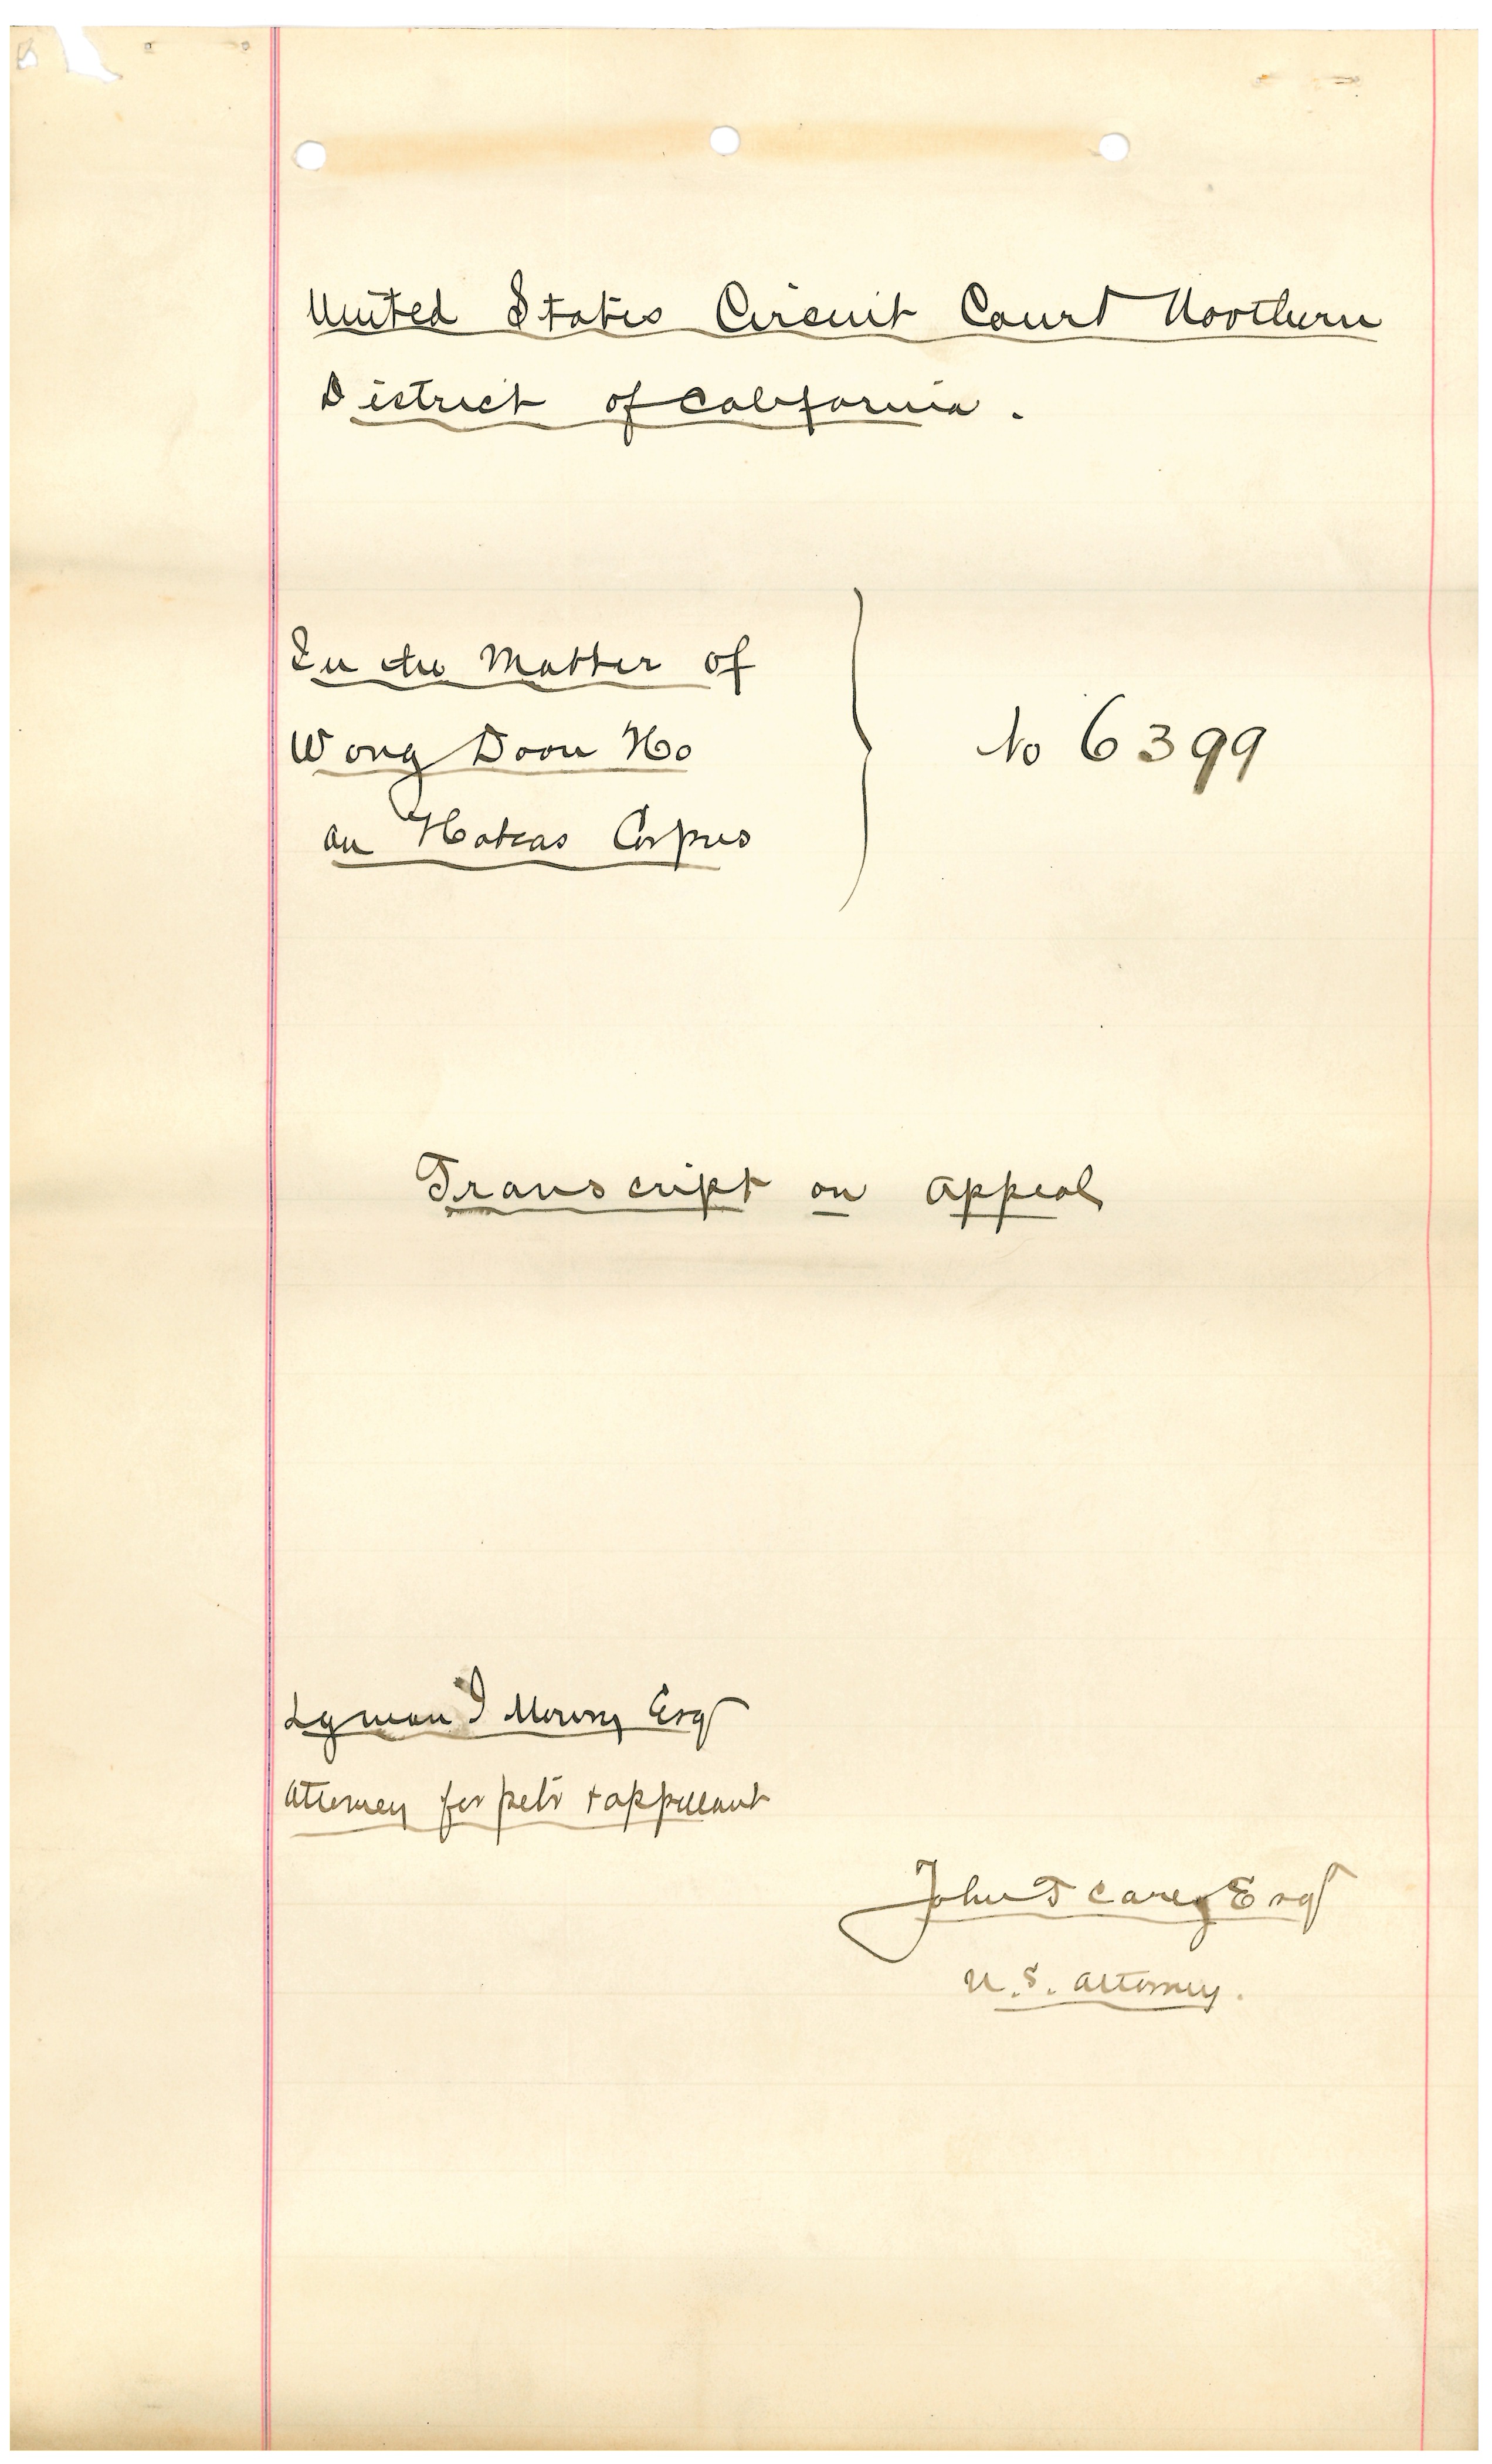 United States Circuit Court Northern
District of California.
In the Matter of
Wong Doon Ho
on Habeas Corpus
No 6399
Transcript on Appeal
Lyman I Mowry Esq
Attorney for petr & appellant
John T Carey Esq
U.S. Attorney.